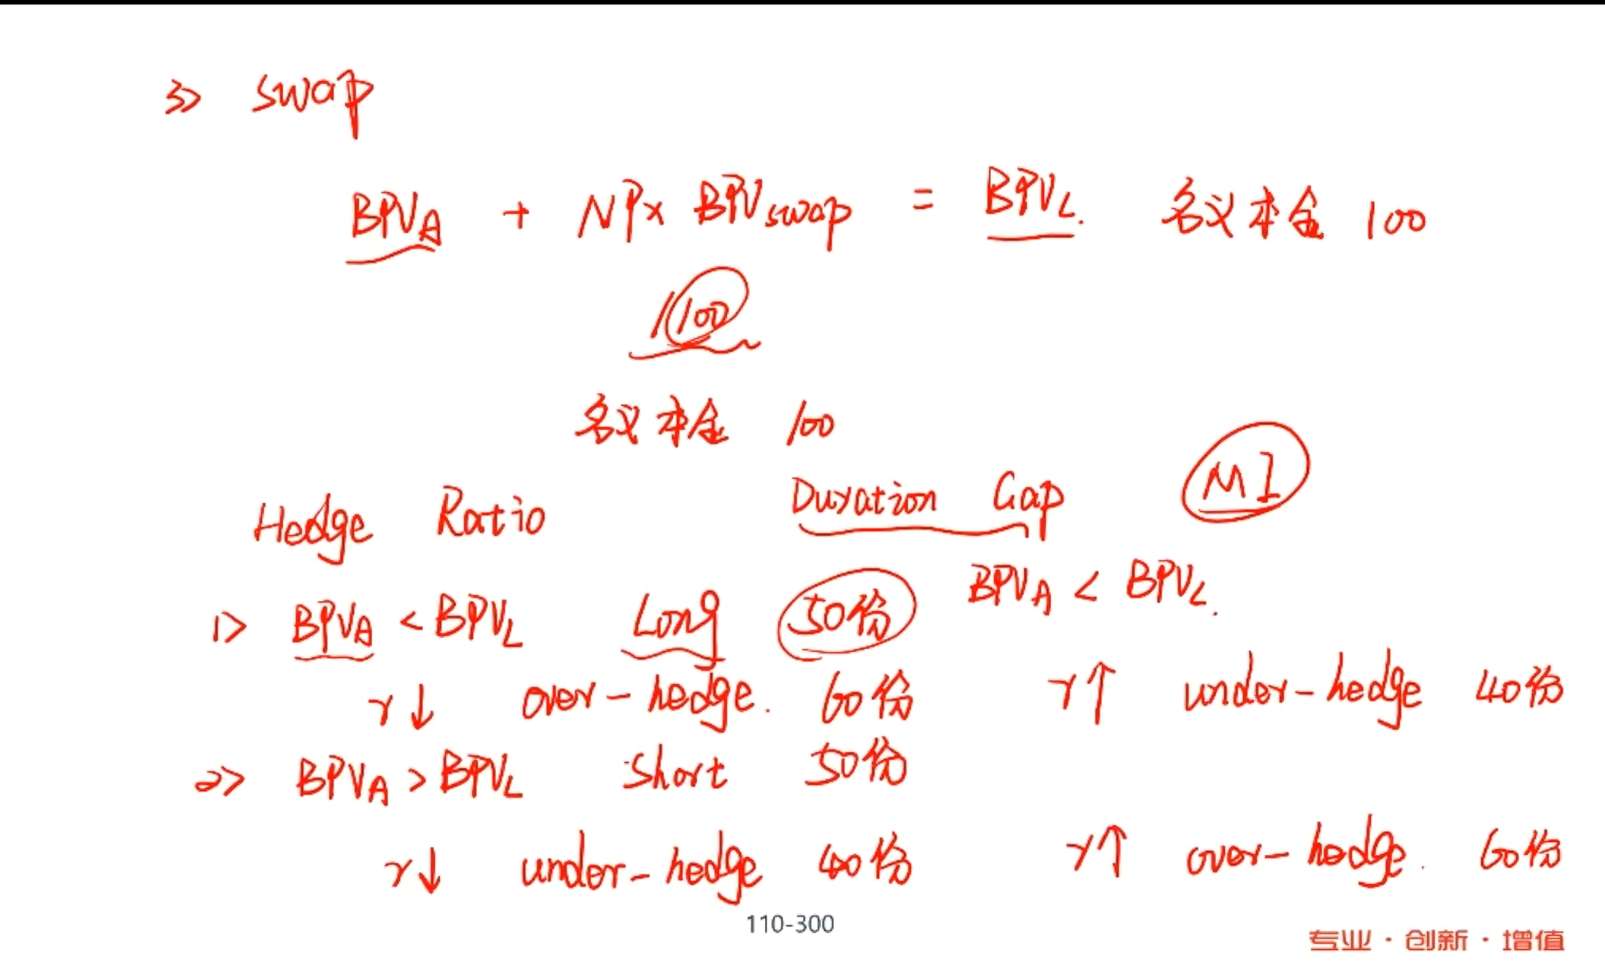 3> swap
BPV_A + NP × BPV_swap = BPV_L. 名义本金 100
1(100)
名义本金 100
Hedge Ratio Duration Gap MI
BPV_A < BPV_L.
1> BPV_A < BPV_L Long 50份
r↓ over-hedge. 60份 r↑ under-hedge 40份
2> BPV_A > BPV_L Short 50份
r↓ under-hedge 40份 r↑ over-hedge. 60份
110-300
专业·创新·增值